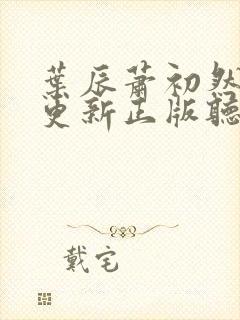 葉辰蕭初然
更新正版聽
戴宅